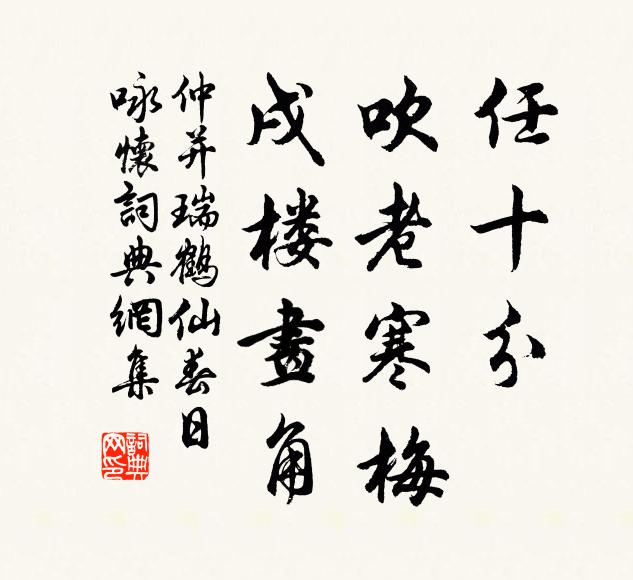 任十分
吹老寒梅
戍楼畫角
仲并瑞鶴仙春日
咏懷詞典網集
詞典网印